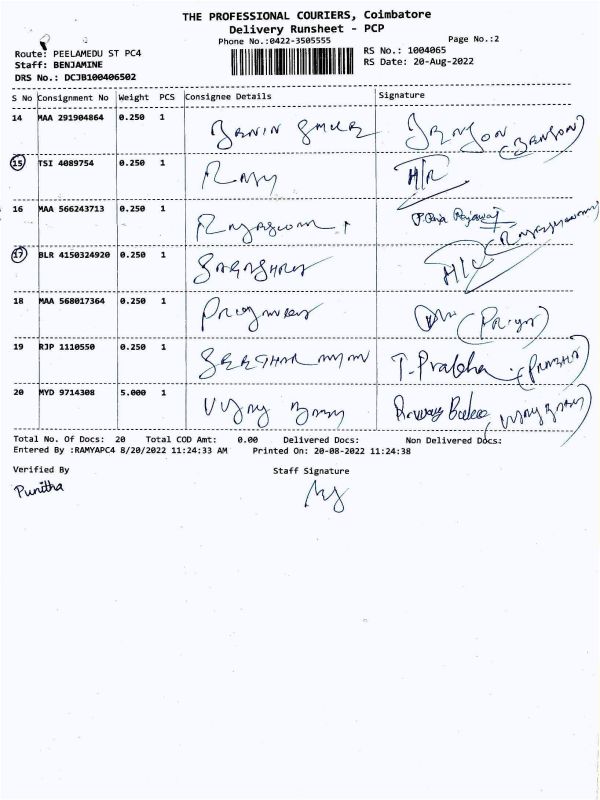 THE PROFESSIONAL COURIERS, Coimbatore
Delivery Runsheet - PCP
Phone No.:0422-3505555 Page No.:2
Route: PEELAMEDU ST PC4 RS No.: 1004065
Staff: BENJAMINE RS Date: 20-Aug-2022
DRS No.: DCJB100406502
S No Consignment No Weight PCS Consignee Details Signature
14 MAA 291904864 0.250 1 (BENSON)
15 TSI 4089754 0.250 1 H/R
16 MAA 566243713 0.250 1
17 BLR 4150324920 0.250 1 H/C
18 MAA 568017364 0.250 1 (Priya)
19 RJP 1110550 0.250 1 T. Prabha (PRABHA)
20 MYD 9714308 5.000 1 Vijay
Total No. Of Docs: 20 Total COD Amt: 0.00 Delivered Docs: Non Delivered Docs:
Entered By :RAMYAPC4 8/20/2022 11:24:33 AM Printed On: 20-08-2022 11:24:38
Verified By Staff Signature
Punitha